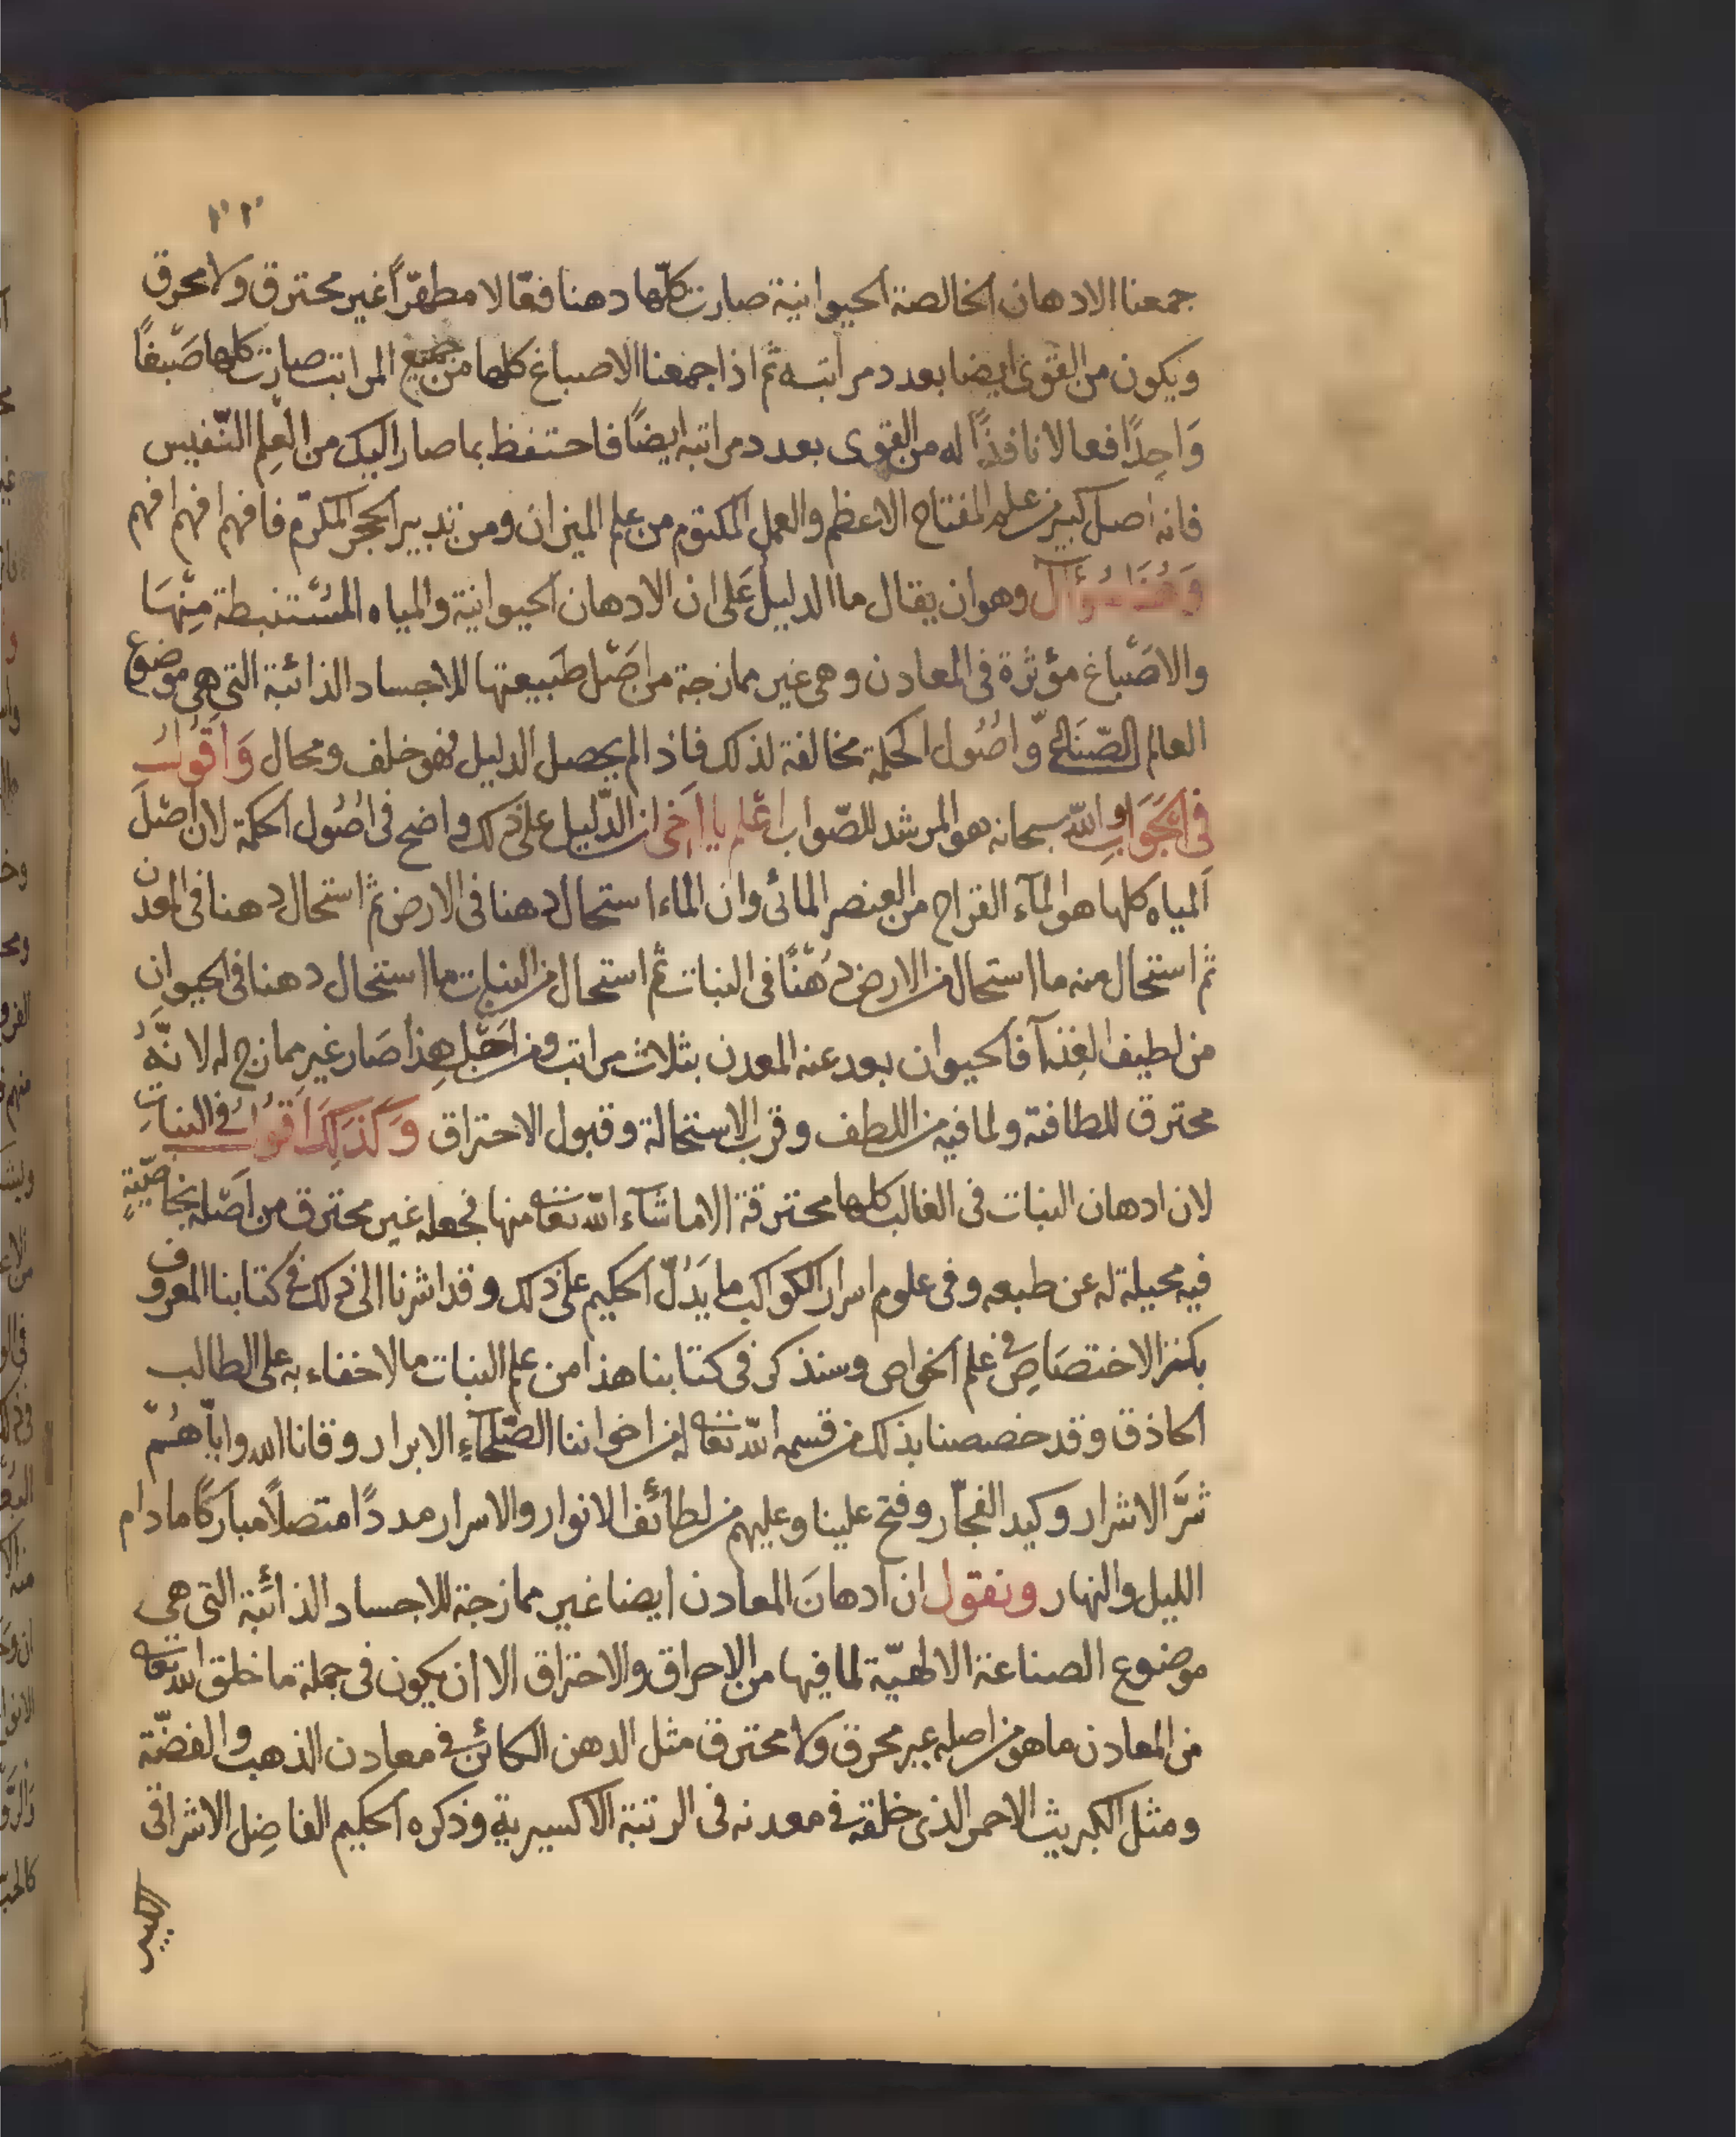 جمعنا الادهان الخالصة الحيوانية صارت كلّها دهنا فعّالا مطهّراً غير محترق ولا محرق
ويكون من القوى ايضا بعدد مراتبه ثم اذا جمعنا الاصباغ كلها من جميع المراتب صارت كلها صَبْغاً
وَاحِدًا فعالا نافذًا له من القوى بعدد مراتبه ايضًا فاحتفظ بما صار اليك من العِلم النّفيس
فانه اصل كبير من علم المفتاح الاعظم والعمل المكتوم من علم الميزان ومن تدبير الحجر المكرّم فافهم افهم افهم
وَهُنَا سُؤَآل وهو ان يقال ما الدليل عَلى ان الادهان الحيوانية والمياه المسْتنبطة مِنْهَا
والاصْباغ مؤثرة في المعادن وهى غير ممازجة من اصْل طبيعتها للاجساد الذائبة التى هى موضوع
العالم الصّناعى وّاصُول الحكمة مخالفة لذلك فاذا لم يحصل الدليل فهو خلف ومحال وَاقولُ
فى الجَوَابِ والله سبحانه هو المرشد للصّواب اعْلم يا اخى ان الدّليل على ذلك واضح فى اصُول الحكمة لان اصْلَ
المياه كلها هو المآء القراح من العنصر المائى وان الماء استحال دهنا فى الارض ثم استحال دهنا فى المعدن
ثم استحال منه ما استحال من الارض دُهْنًا فى النبات ثم استحال من النبات ما استحال دهنا فى الحيوان
من لطيف الغِذآ فالحيوان بعد عنه المعدن بثلاث مراتب ومن اجْل هذا صَار غير ممازج له لانّهُ
محترق للطافته ولما فيه من اللطف وقرب الاستحالة وقبول الاحتراق وَكَذلِكَ اَقولُ فى النباتِ
لان ادهان النبات فى الغالب كلها محترقة الا ما شآء الله تعا منها فجعله غير محترق من اصْله بخاصّيّةٍ
فيه محيلة له عن طبعه وفى علوم اسرار الكواكب ما يَدُلّ الحكيم على ذلك وقد اشرنا الى ذلك فى كتابنا المعروف
بكنز الاختصَاصِ فى علم الخواص وسنذكر فى كتابنا هذا من علم النبات ما لا خفاء به على الطالب
الحاذق وقد خصصنا بذلك من قسمه الله تعا له من اخواننا الصّلحآءِ الابرار وقانا الله وايّاهُمْ
شرَّ الاشرار وكيد الفجّار وفتح علينا وعليهم من لطائف الانوار والاسرار مددًا متصلًا مباركًا مادام
الليل والنهار ونقول ان ادهانَ المعادن ايضا غير ممازجة للاجساد الذائبة التى هى
موضوع الصناعة الالهيّة لما فيها من الاحراق والاحتراق الا ان يكون فى جملة ما خلق الله تعا
من المعادن ما هو من اصله غير محرق ولا محترق مثل الدهن الكائن فى معادن الذهب والفضّة
ومثل الكبريت الاحمر الذى خلقه فى معدنه فى الرتبة الاكسيرية وذكره الحكيم الفاضِل الاشراقى
الكبير